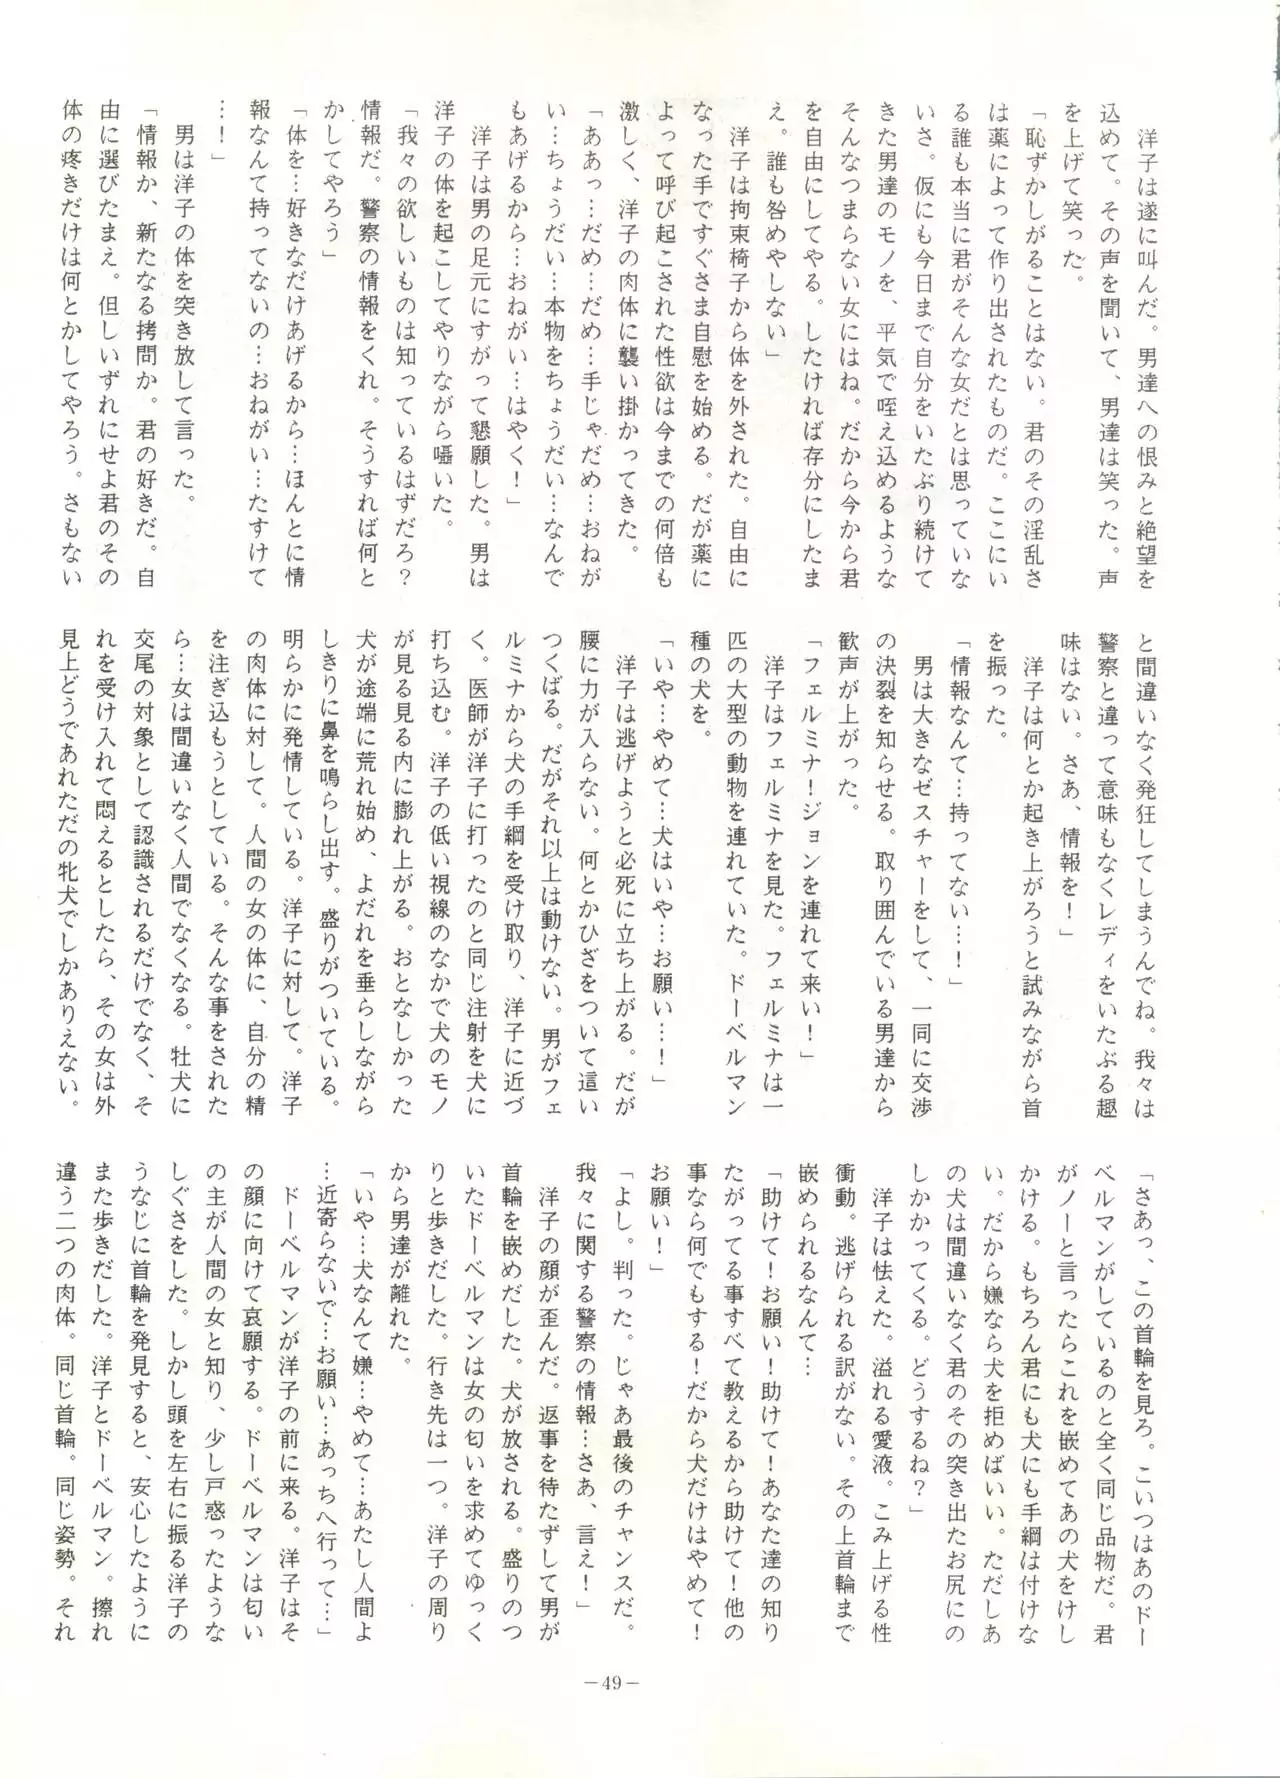 洋子は遂に叫んだ。男達への恨みと絶望を
込めて。その声を聞いて、男達は笑った。声
を上げて笑った。
「恥ずかしがることはない。君のその淫乱さ
は薬によって作り出されたものだ。ここにい
る誰も本当に君がそんな女だとは思っていな
いさ。仮にも今日まで自分をいたぶり続けて
きた男達のモノを、平気で咥え込めるような
そんなつまらない女にはね。だから今から君
を自由にしてやる。したければ存分にしたま
え。誰も咎めやしない」
　洋子は拘束椅子から体を外された。自由に
なった手ですぐさま自慰を始める。だが薬に
よって呼び起こされた性欲は今までの何倍も
激しく、洋子の肉体に襲い掛かってきた。
「ああっ…だめ…だめ…手じゃだめ…おねが
い…ちょうだい…本物をちょうだい…なんで
もあげるから…おねがい…はやく！」
　洋子は男の足元にすがって懇願した。男は
洋子の体を起こしてやりながら囁いた。
「我々の欲しいものは知っているはずだろ？
情報だ。警察の情報をくれ。そうすれば何と
かしてやろう」
「体を…好きなだけあげるから…ほんとに情
報なんて持ってないの…おねがい…たすけて
…！」
　男は洋子の体を突き放して言った。
「情報か、新たなる拷問か。君の好きだ。自
由に選びたまえ。但しいずれにせよ君のその
体の疼きだけは何とかしてやろう。さもない
と間違いなく発狂してしまうんでね。我々は
警察と違って意味もなくレディをいたぶる趣
味はない。さあ、情報を！」
　洋子は何とか起き上がろうと試みながら首
を振った。
「情報なんて…持ってない…！」
　男は大きなゼスチャーをして、一同に交渉
の決裂を知らせる。取り囲んでいる男達から
歓声が上がった。
「フェルミナ！ジョンを連れて来い！」
　洋子はフェルミナを見た。フェルミナは一
匹の大型の動物を連れていた。ドーベルマン
種の犬を。
「いや…やめて…犬はいや…お願い…！」
　洋子は逃げようと必死に立ち上がる。だが
腰に力が入らない。何とかひざをついて這い
つくばる。だがそれ以上は動けない。男がフェ
ルミナから犬の手綱を受け取り、洋子に近づ
く。医師が洋子に打ったのと同じ注射を犬に
打ち込む。洋子の低い視線のなかで犬のモノ
が見る見る内に膨れ上がる。おとなしかった
犬が途端に荒れ始め、よだれを垂らしながら
しきりに鼻を鳴らし出す。盛りがついている。
明らかに発情している。洋子に対して。洋子
の肉体に対して。人間の女の体に、自分の精
を注ぎ込もうとしている。そんな事をされた
ら…女は間違いなく人間でなくなる。牡犬に
交尾の対象として認識されるだけでなく、そ
れを受け入れて悶えるとしたら、その女は外
見上どうであれただの牝犬でしかありえない。
「さあっ、この首輪を見ろ。こいつはあのドー
ベルマンがしているのと全く同じ品物だ。君
がノーと言ったらこれを嵌めてあの犬をけし
かける。もちろん君にも犬にも手綱は付けな
い。だから嫌なら犬を拒めばいい。ただしあ
の犬は間違いなく君のその突き出たお尻にの
しかかってくる。どうするね？」
　洋子は怯えた。溢れる愛液。こみ上げる性
衝動。逃げられる訳がない。その上首輪まで
嵌められるなんて…
「助けて！お願い！助けて！あなた達の知り
たがってる事すべて教えるから助けて！他の
事なら何でもする！だから犬だけはやめて！
お願い！」
「よし。判った。じゃあ最後のチャンスだ。
我々に関する警察の情報…さあ、言え！」
　洋子の顔が歪んだ。返事を待たずして男が
首輪を嵌めだした。犬が放される。盛りのつ
いたドーベルマンは女の匂いを求めてゆっく
りと歩きだした。行き先は一つ。洋子の周り
から男達が離れた。
「いや…犬なんて嫌…やめて…あたし人間よ
…近寄らないで…お願い…あっちへ行って…」
　ドーベルマンが洋子の前に来る。洋子はそ
の顔に向けて哀願する。ドーベルマンは匂い
の主が人間の女と知り、少し戸惑ったような
しぐさをした。しかし頭を左右に振る洋子の
うなじに首輪を発見すると、安心したように
また歩きだした。洋子とドーベルマン。擦れ
違う二つの肉体。同じ首輪。同じ姿勢。それ
－49－